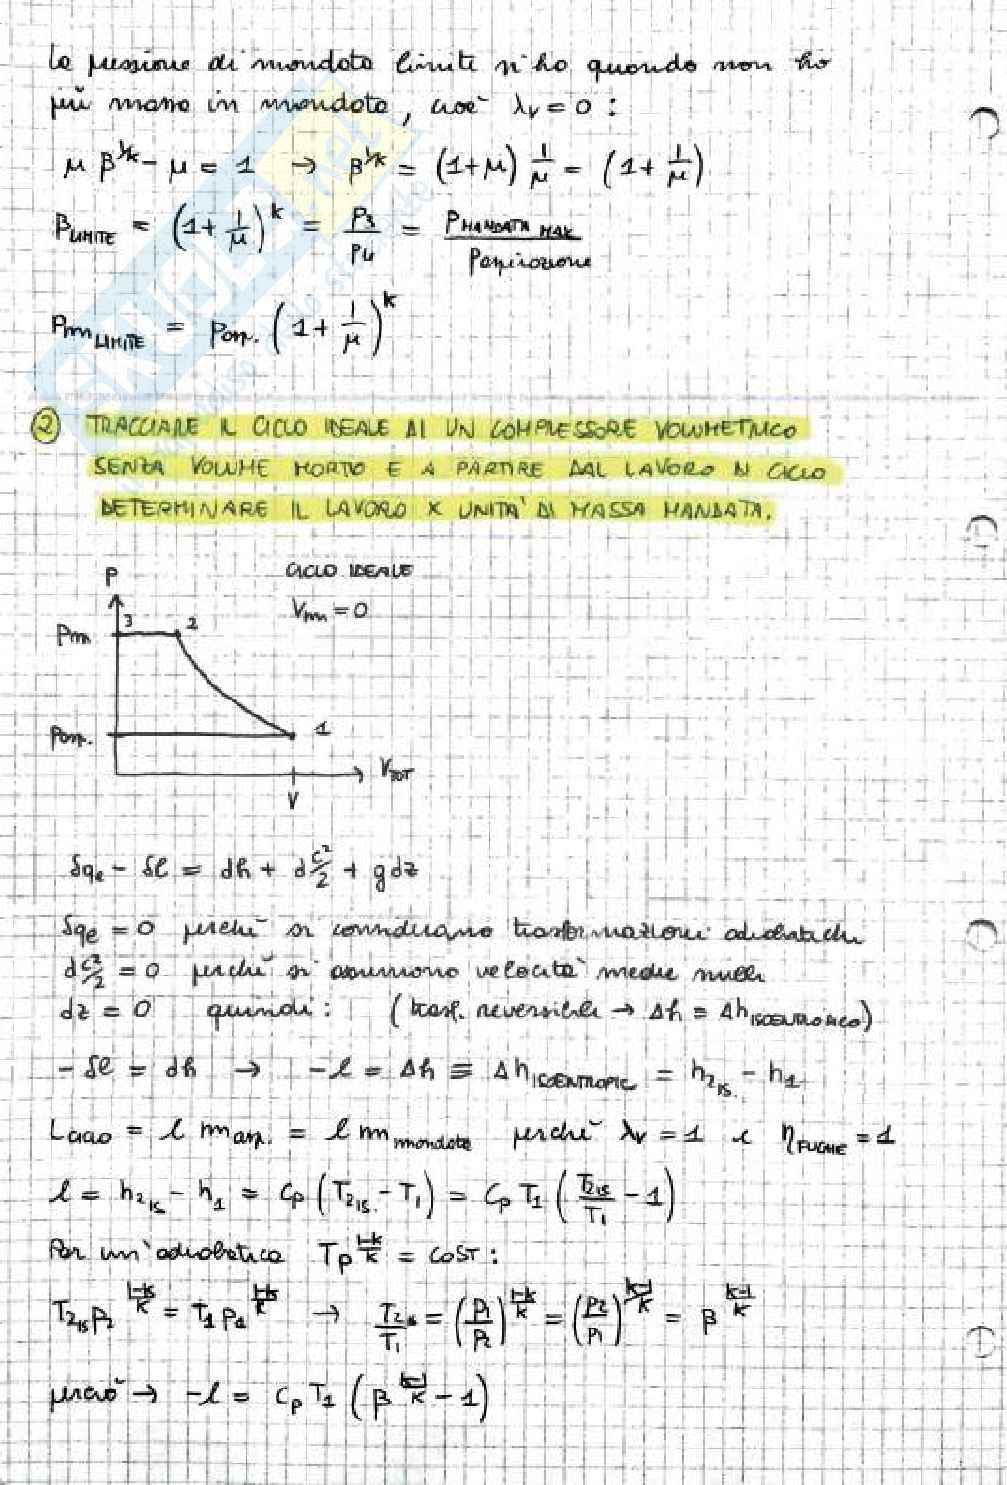 La pressione di mandata limite si ha quando non ho
più massa in mandata, cioè λv = 0 :
μ β^1/k - μ = 1 → β^1/k = (1+μ) 1/μ = (1 + 1/μ)
β LIMITE = (1 + 1/μ)^k = p3/p4 = P MANDATA MAX / P aspirazione
Pm LIMITE = Pasp. (1 + 1/μ)^k
2 TRACCIARE IL CICLO IDEALE DI UN COMPRESSORE VOLUMETRICO
SENZA VOLUME MORTO E A PARTIRE DAL LAVORO DI CICLO
DETERMINARE IL LAVORO X UNITA' DI MASSA MANDATA.
P
CICLO IDEALE
Vm = 0
3 2
Pm
Pasp. 1
V TOT
V
δqe - δl = dh + d c²/2 + g dz
δqe = 0 perchè si considerano trasformazioni adiabatiche
d c²/2 = 0 perchè si assumono velocità medie nulle
dz = 0 quindi : (trasf. reversibile → Δh ≡ Δh ISOENTROPICO)
- δl = dh → - l = Δh ≡ Δh ISOENTROPIC = h2is. - h1
L CICLO = l m asp. = l m mandata perchè λv = 1 e η FUGHE = 1
l = h2is - h1 = cp (T2is. - T1) = cp T1 (T2is/T1 - 1)
Per un'adiabatica T p^(1-k)/k = COST :
T2is p2^(1-k)/k = T1 p1^(1-k)/k → T2is/T1 = (p1/p2)^(1-k)/k = (p2/p1)^(k-1)/k = β^(k-1)/k
perciò → - l = cp T1 (β^(k-1)/k - 1)